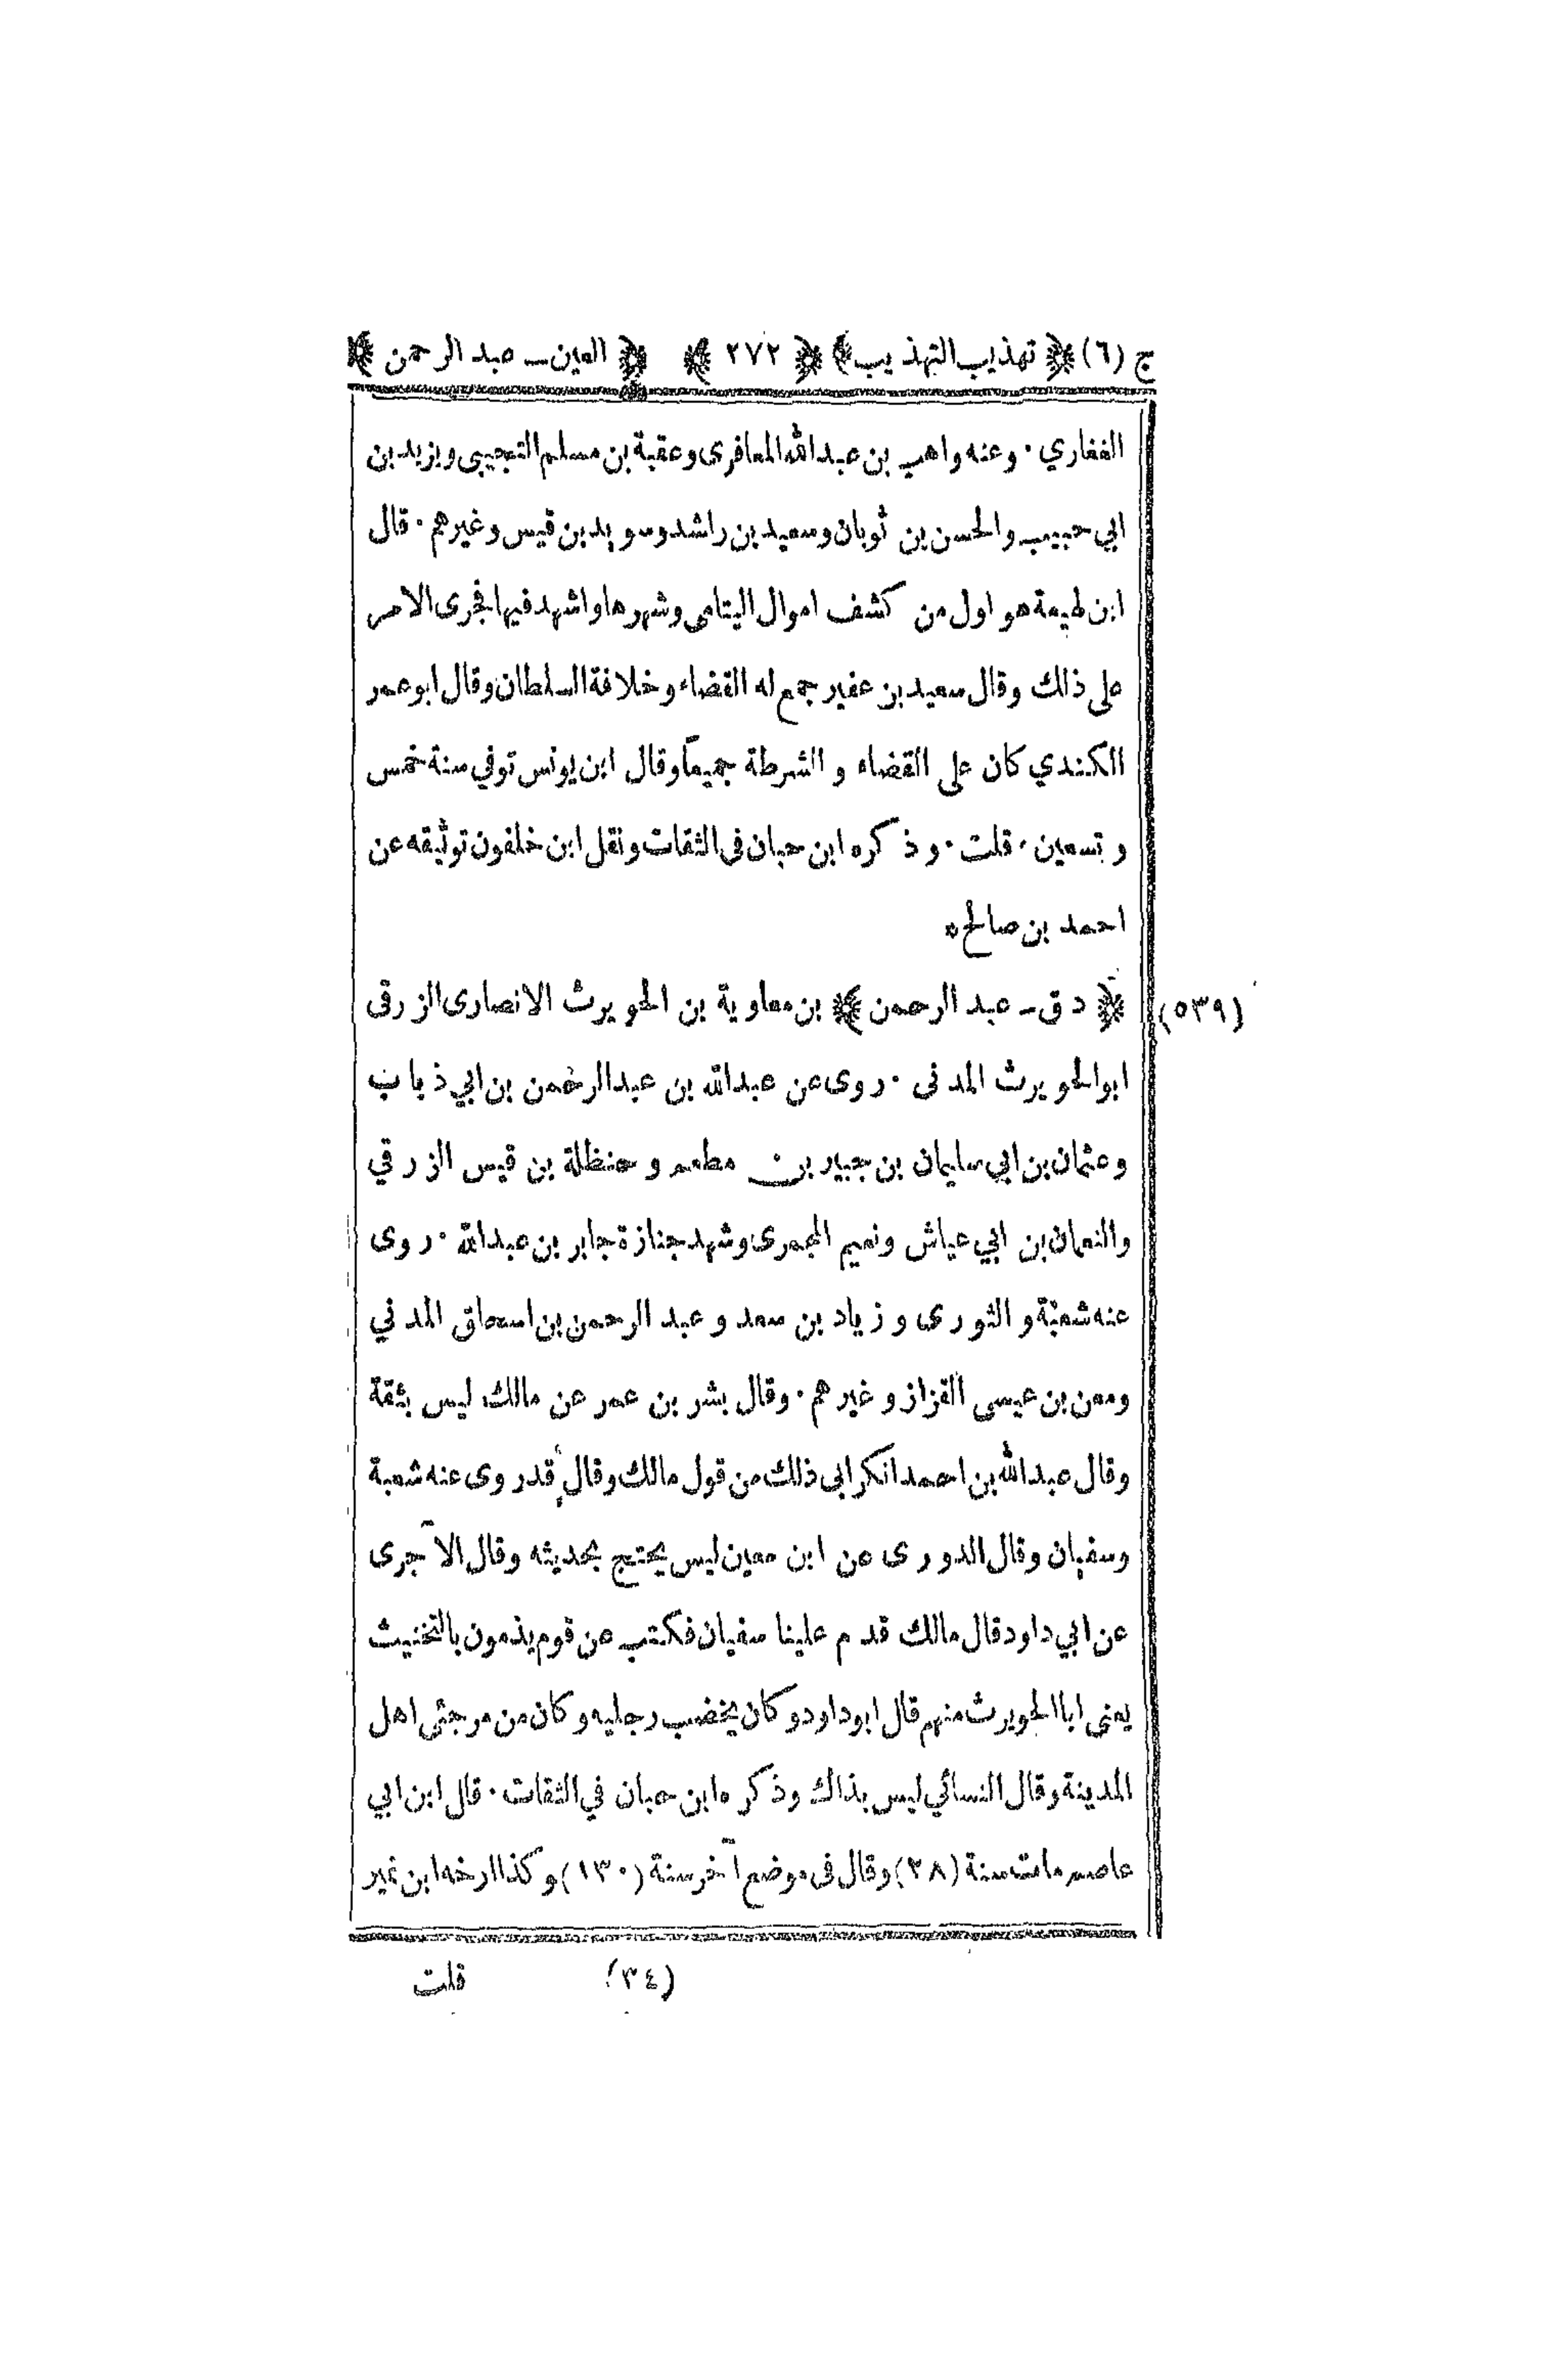 ج (٦) ﴿ تهذيب التهذيب ﴾ ﴿ ٢٧٢ ﴾ ﴿ العين ـ عبد الرحمن ﴾
الغفاري · وعنه واهب بن عبد الله المعافرى وعقبة بن مسلم التجيبى ويزيد بن
ابي حبيب والحسن بن ثوبان وسعيد بن راشد وسويد بن قيس وغيرهم · قال
ابن لهيعة هو اول من كشف اموال اليتامى وشهرها واشهد فيها فجرى الامر
على ذلك وقال سعيد بن عفير جمع له القضاء وخلافة السلطان وقال ابو عمر
الكندي كان على القضاء و الشرطة جميعاً وقال ابن يونس توفي سنة خمس
وتسعين · قلت · وذكره ابن حبان فى الثقات ونقل ابن خلفون توثيقه عن
احمد بن صالح *
(٥٣٩) ﴿ د ق ـ عبد الرحمن ﴾ بن معاوية بن الحويرث الانصارى الزرقى
ابو الحويرث المدنى · روى عن عبد الله بن عبد الرحمن بن ابي ذياب
وعثمان بن ابي سليمان بن جبير بن مطعم و حنظلة بن قيس الزرقي
والنعمان بن ابي عياش ونعيم المجمرى وشهد جنازة جابر بن عبد الله · روى
عنه شعبة و الثورى و زياد بن سعد و عبد الرحمن بن اسحاق المدني
ومعن بن عيسى القزاز وغيرهم · وقال بشر بن عمر عن مالك ليس بثقة
وقال عبد الله بن احمد انكر ابى ذلك من قول مالك وقال قد روى عنه شعبة
وسفيان وقال الدورى عن ابن معين ليس يحتج بحديثه وقال الآجرى
عن ابي داود قال مالك قدم علينا سفيان فكتب عن قوم يذمون بالتخنيث
يعنى ابا الحويرث منهم قال ابو داود وكان يخضب رجليه وكان من مرجئى اهل
المدينة وقال النسائي ليس بذاك وذكره ابن حبان في الثقات · قال ابن ابي
عاصم مات سنة (٢٨) وقال فى موضع آخر سنة (١٣٠) وكذا ارخه ابن نمير
(٣٤) قلت